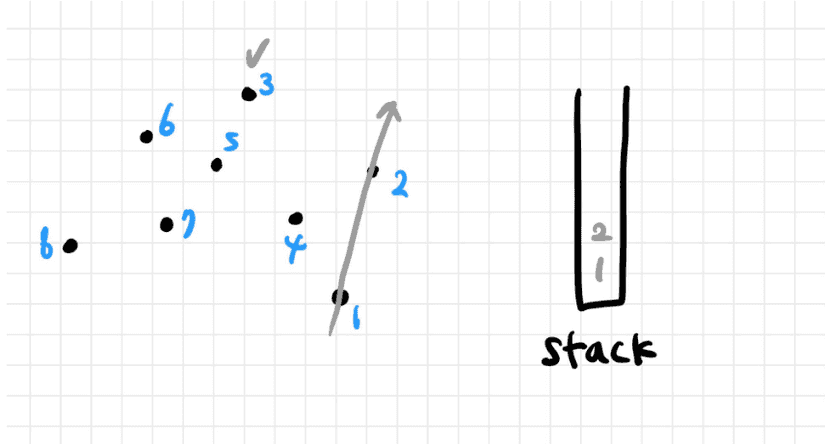 3
6
5
2
2
7
4
8
1
1
stack